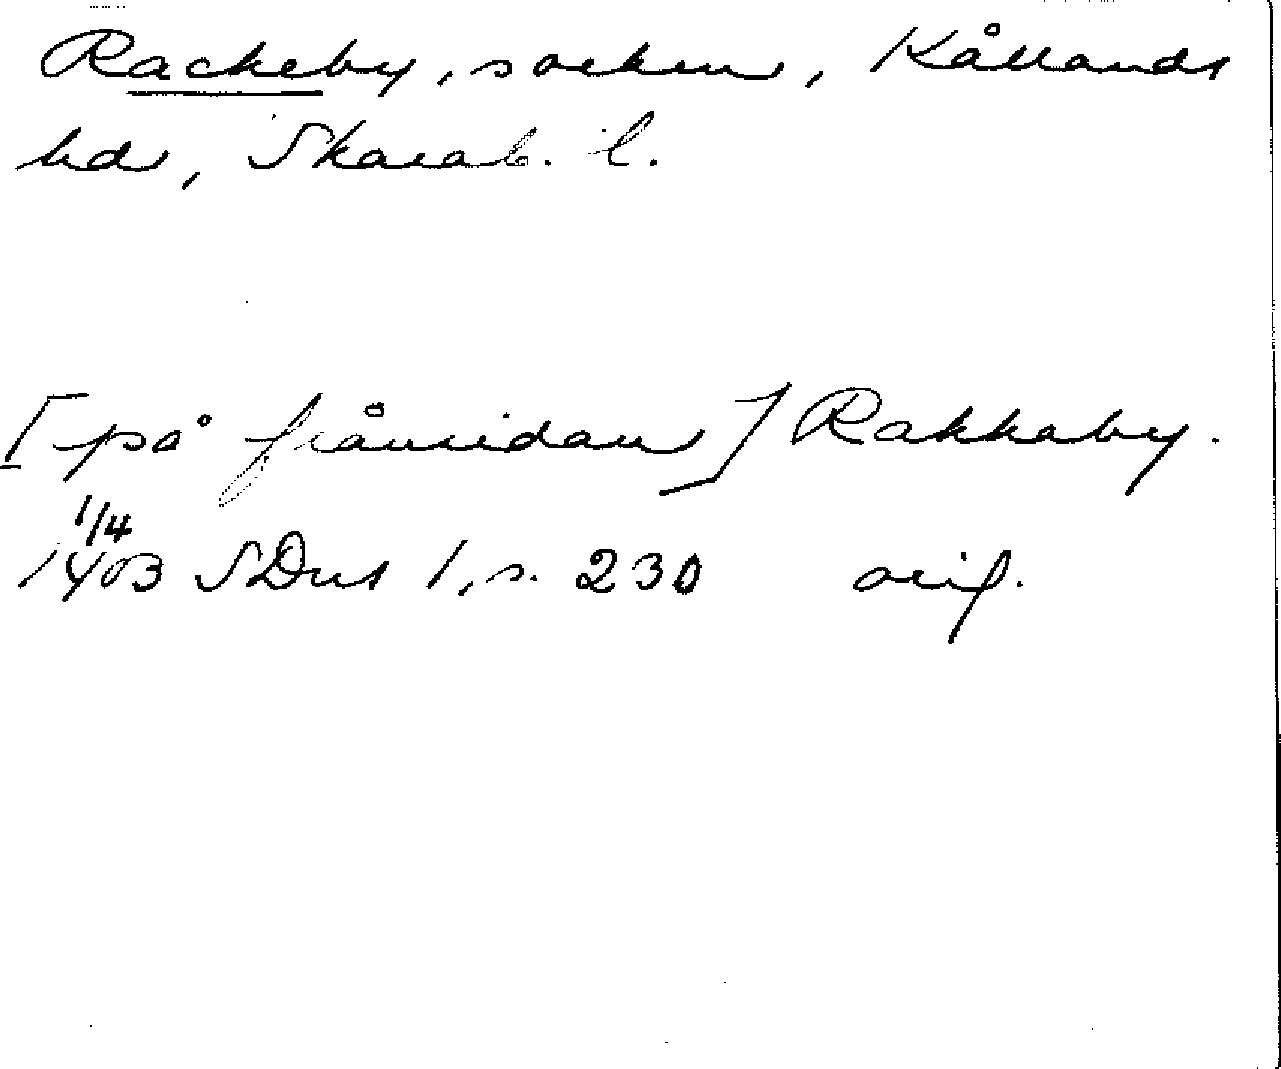 Rackeby, socken, Kållands
hd, Skarab. l.
[på frånsidan] Rakkaby.
1/4
1403 SDns 1, s. 230 orig.